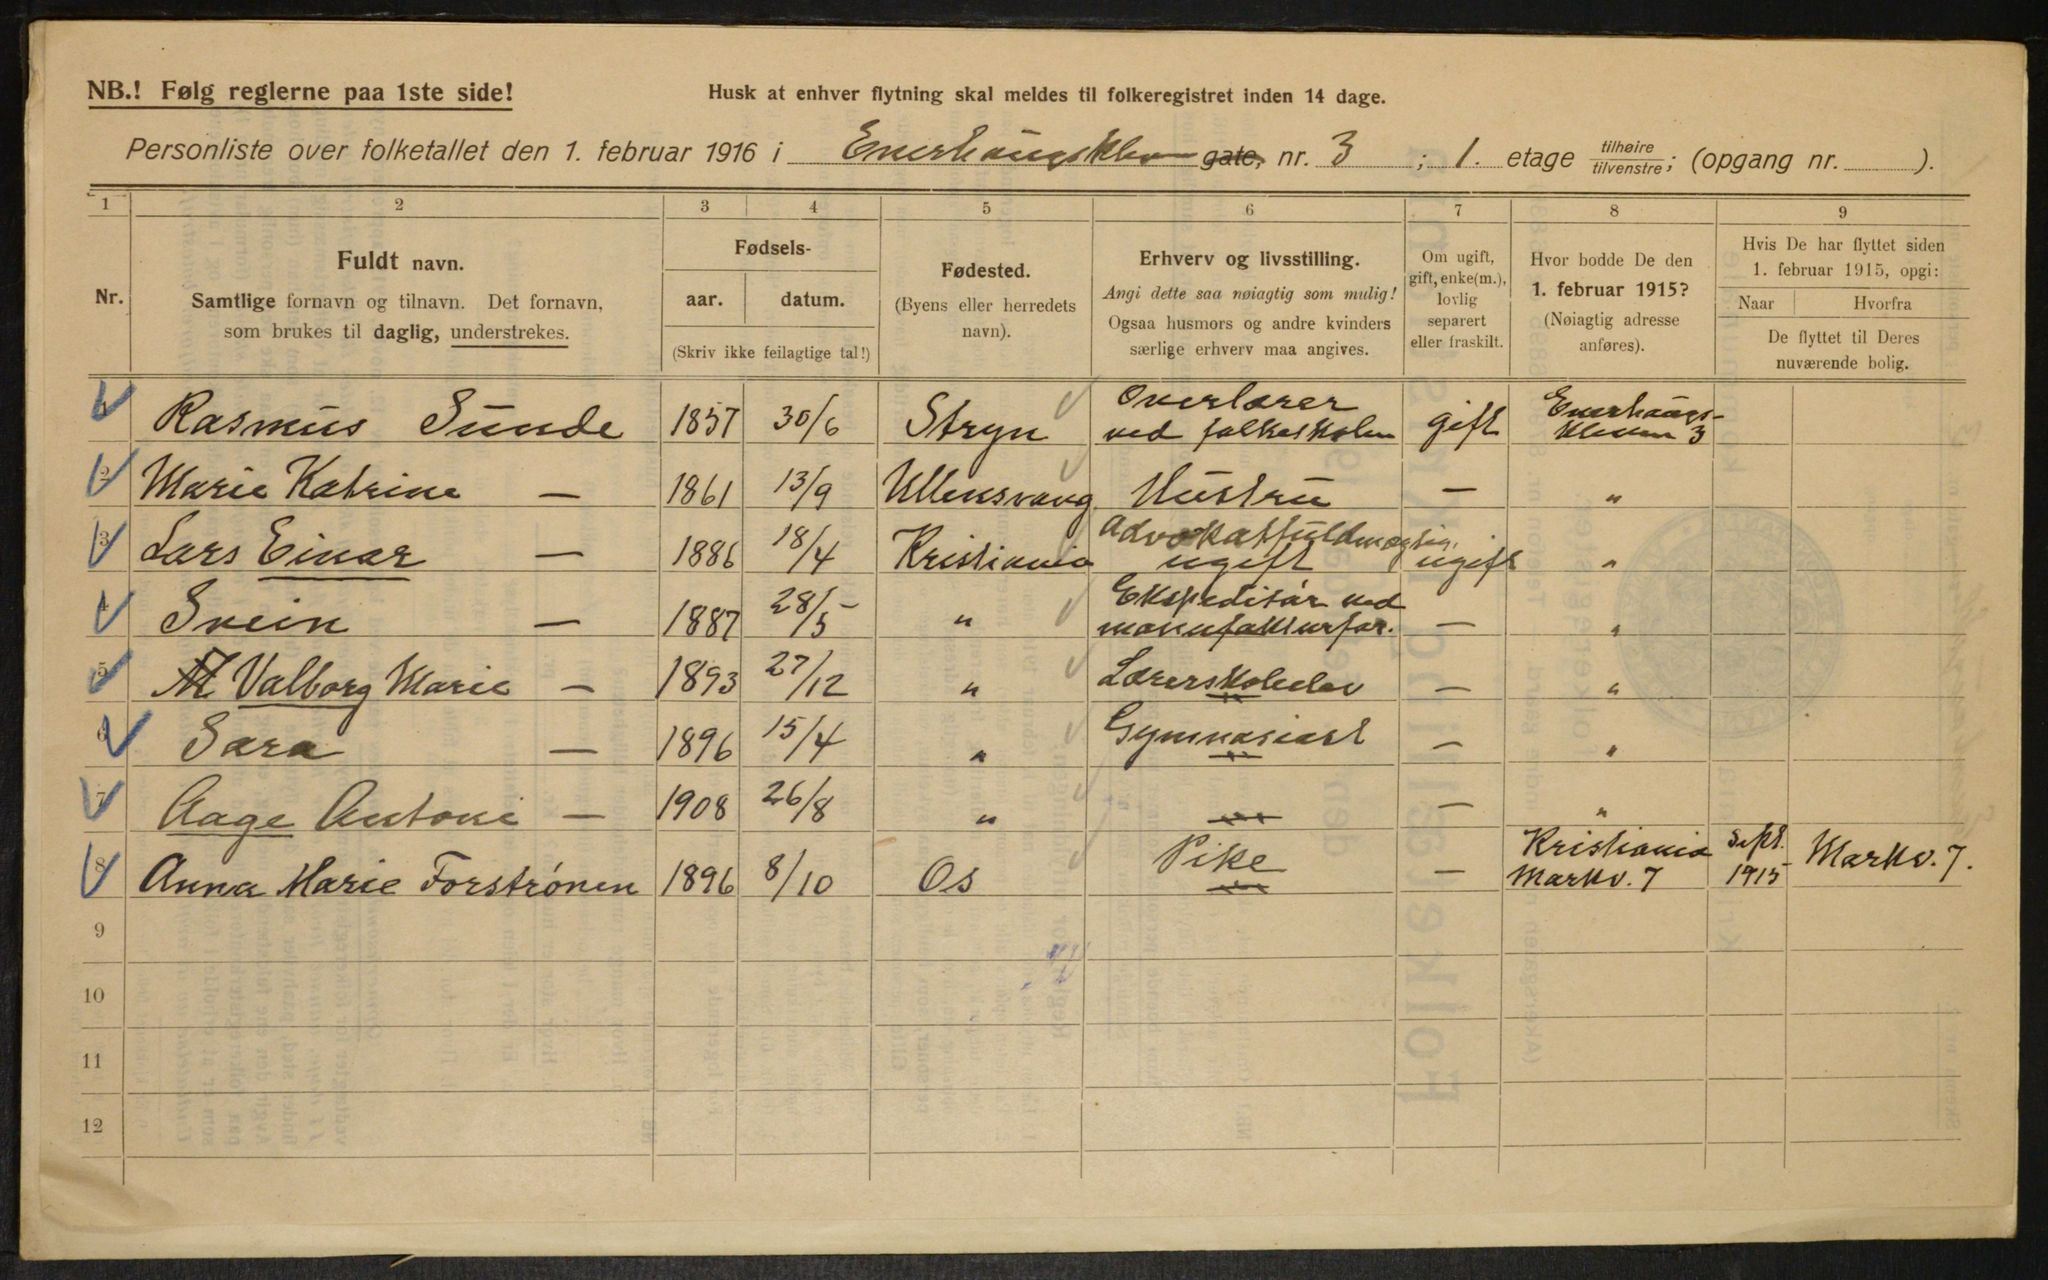 NB.! Følg reglerne paa 1ste side!
Husk at enhver flytning skal meldes til folkeregistret inden 14 dage.
Personliste over folketallet den 1. februar 1916 i Enerhaugskleven gate, nr. 3 ; 1. etage tilhøire/tilvenstre; (opgang nr. ).
1 2 3 4 5 6 7 8 9
Nr.
Fuldt navn.
Samtlige fornavn og tilnavn. Det fornavn,
som brukes til daglig, understrekes.
Fødsels-
aar. datum.
(Skriv ikke feilagtige tal!)
Fødested.
(Byens eller herredets
navn).
Erhverv og livsstilling.
Angi dette saa nøiagtig som mulig!
Ogsaa husmors og andre kvinders
særlige erhverv maa angives.
Om ugift,
gift, enke(m.),
lovlig
separert
eller fraskilt.
Hvor bodde De den
1. februar 1915?
(Nøiagtig adresse
anføres).
Hvis De har flyttet siden
1. februar 1915, opgi:
Naar Hvorfra
De flyttet til Deres
nuværende bolig.
1 Rasmus Sunde 1857 30/6 Stryn Overlærer ved folkeskolen gift Enerhaugskleven 3
2 Marie Katrine — 1861 13/9 Ullensvang Hustru — "
3 Lars Einar — 1886 18/4 Kristiania Advokatfuldmægtig, ugift ugift "
4 Svein — 1887 28/5 " Ekspeditør ved manufakturfor. — "
5 Valborg Marie — 1893 27/12 " Lærerskoleelev — "
6 Sara — 1896 15/4 " Gymnasiast — "
7 Aage Antoni — 1908 26/8 " — — "
8 Anna Marie Forströnen 1896 8/10 Os Pike — Kristiania Markv. 7 Sept. 1915 Markv. 7.
9
10
11
12